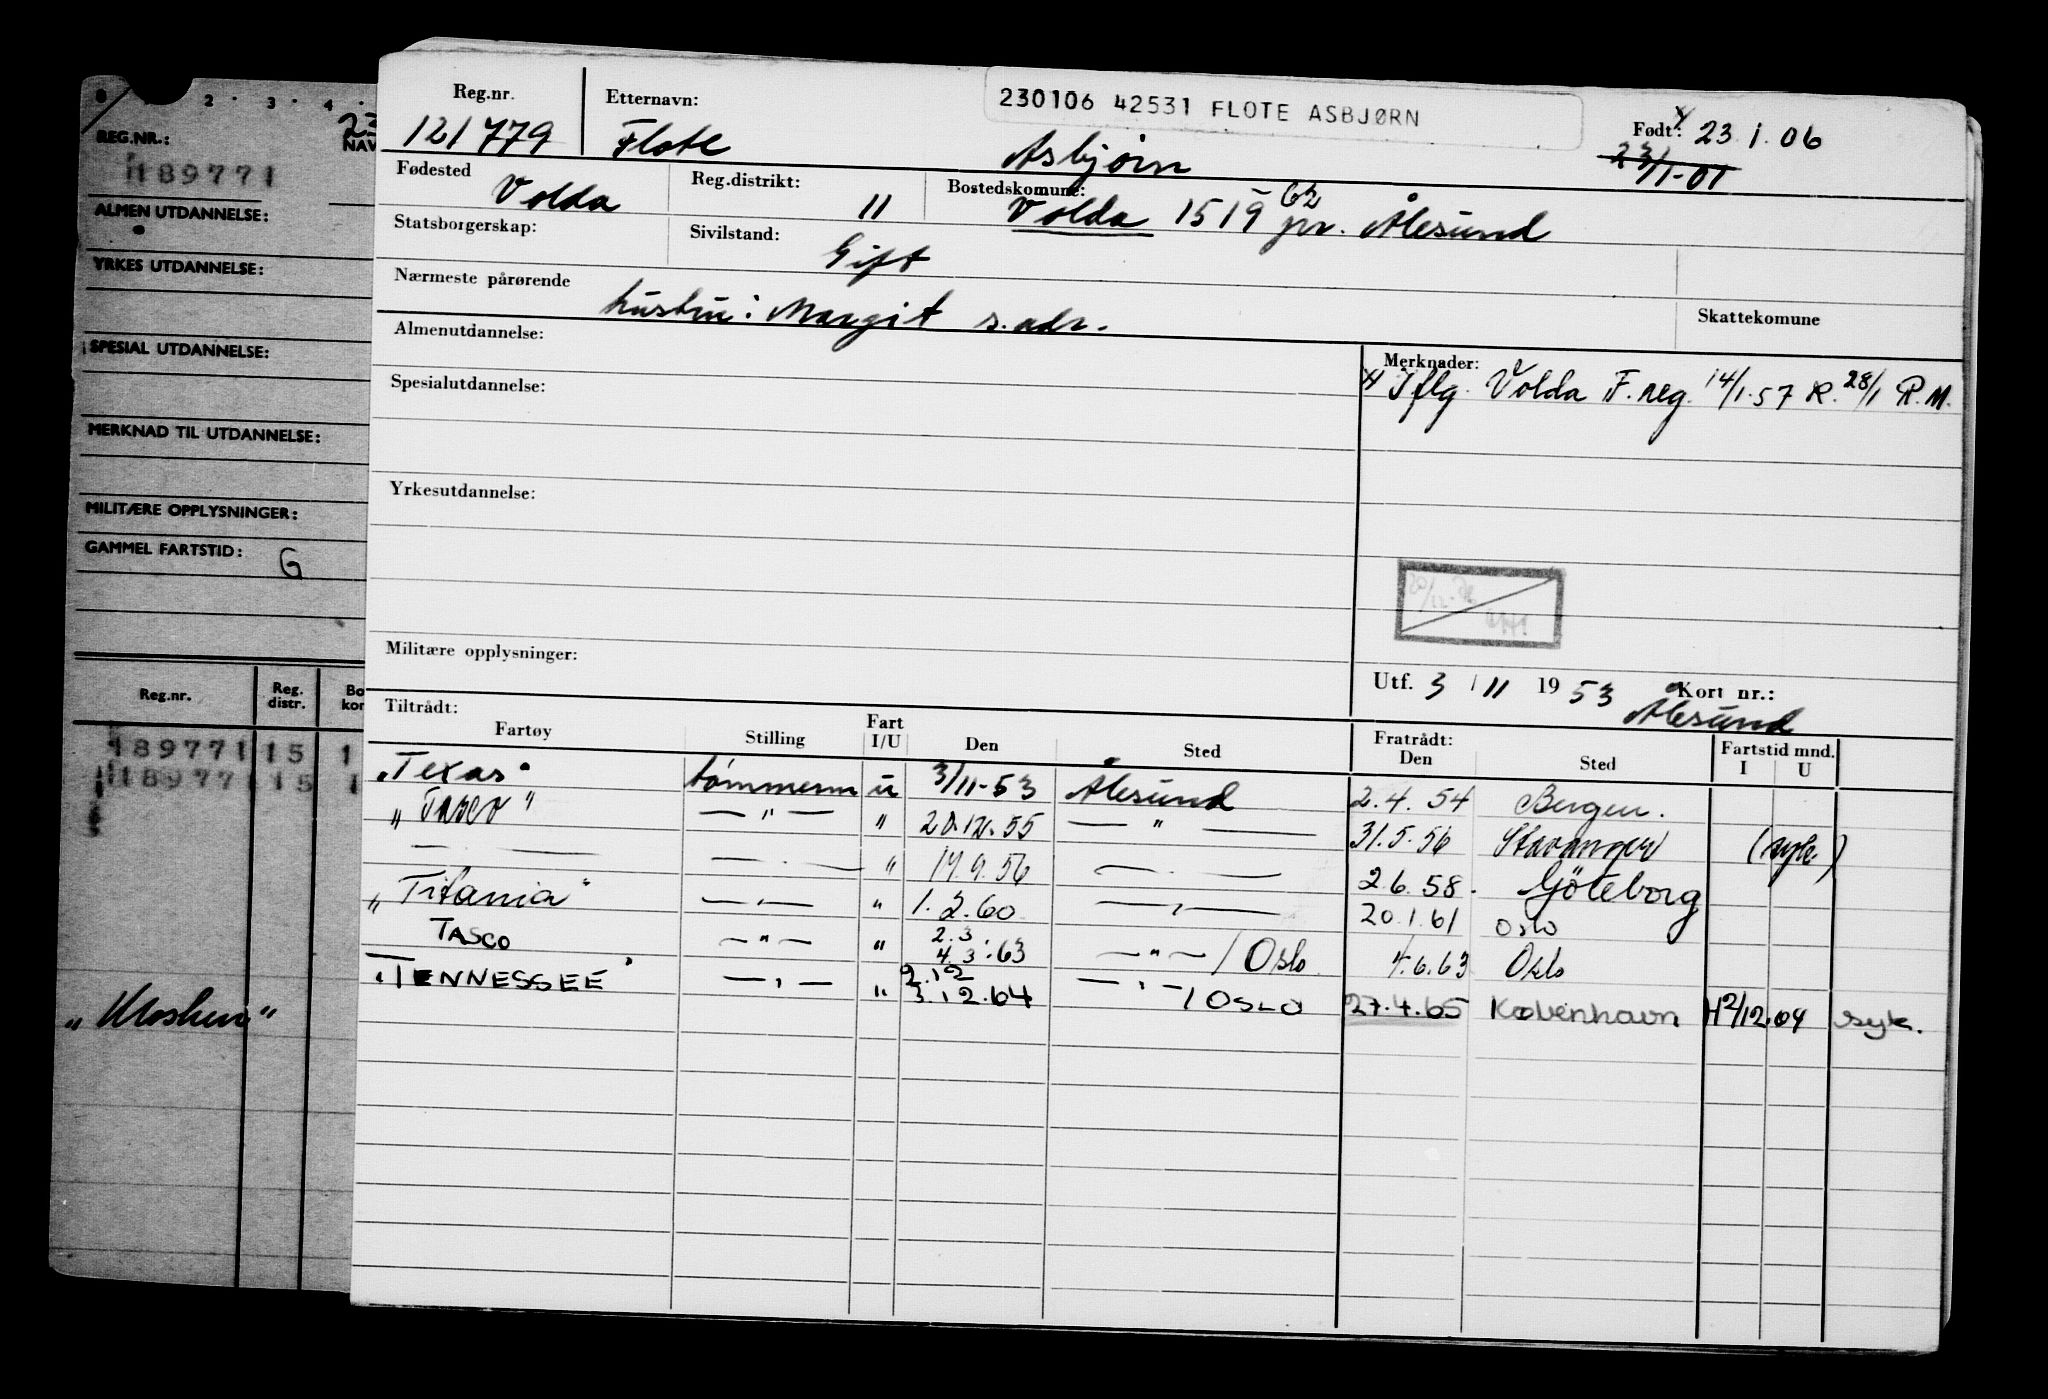 2 · 3 · 4 ·
REG.NR.:
NAV
189771
ALMEN UTDANNELSE:
YRKES UTDANNELSE:
SPESIAL UTDANNELSE:
MERKNAD TIL UTDANNELSE:
MILITÆRE OPPLYSNINGER:
GAMMEL FARTSTID: G
Reg.nr. Reg. distr. Bo kor
189771 15 1
189771 15 1
Reg.nr. 121779
Etternavn: Flote Asbjørn
230106 42531 FLOTE ASBJØRN
Født: 23.1.06
23/1-01
Fødested Volda
Reg.distrikt: 11
Bostedskomune: Volda 1519 62 pr. Ålesund
Statsborgerskap:
Sivilstand: Gift
Nærmeste pårørende hustru: Margit s. adr.
Skattekomune
Almenutdannelse:
Merknader:
x) Iflg. Volda F.reg. 14/1-57 R. 28/1 R.M.
Spesialutdannelse:
Yrkesutdannelse:
Militære opplysninger:
Utf. 3 / 11 1953 Kort nr.:
Ålesund
Tiltrådt: Fratrådt: Fartstid mnd.
Fartøy Stilling Fart I/U Den Sted Den Sted I U
"Texas" tømmerm u 3/11-53 Ålesund 2.4.54 Bergen.
"Tasco" — " — " 20.12.55 — " — 31.5.56 Stavanger (syk.)
— " — — " — " 19.9.56 — " — 2.6.58. Göteborg
"Titania" — " — " 1.2.60 — " — 20.1.61 Oslo
TASCO — " — " 2.3. 4.3.63 — " — / Oslo 4.6.63 Oslo
"TENNESSEE" — " — " 2.12 3.12.64 — " — / OSLO 27.4.65 København H 2/12.64 syk.